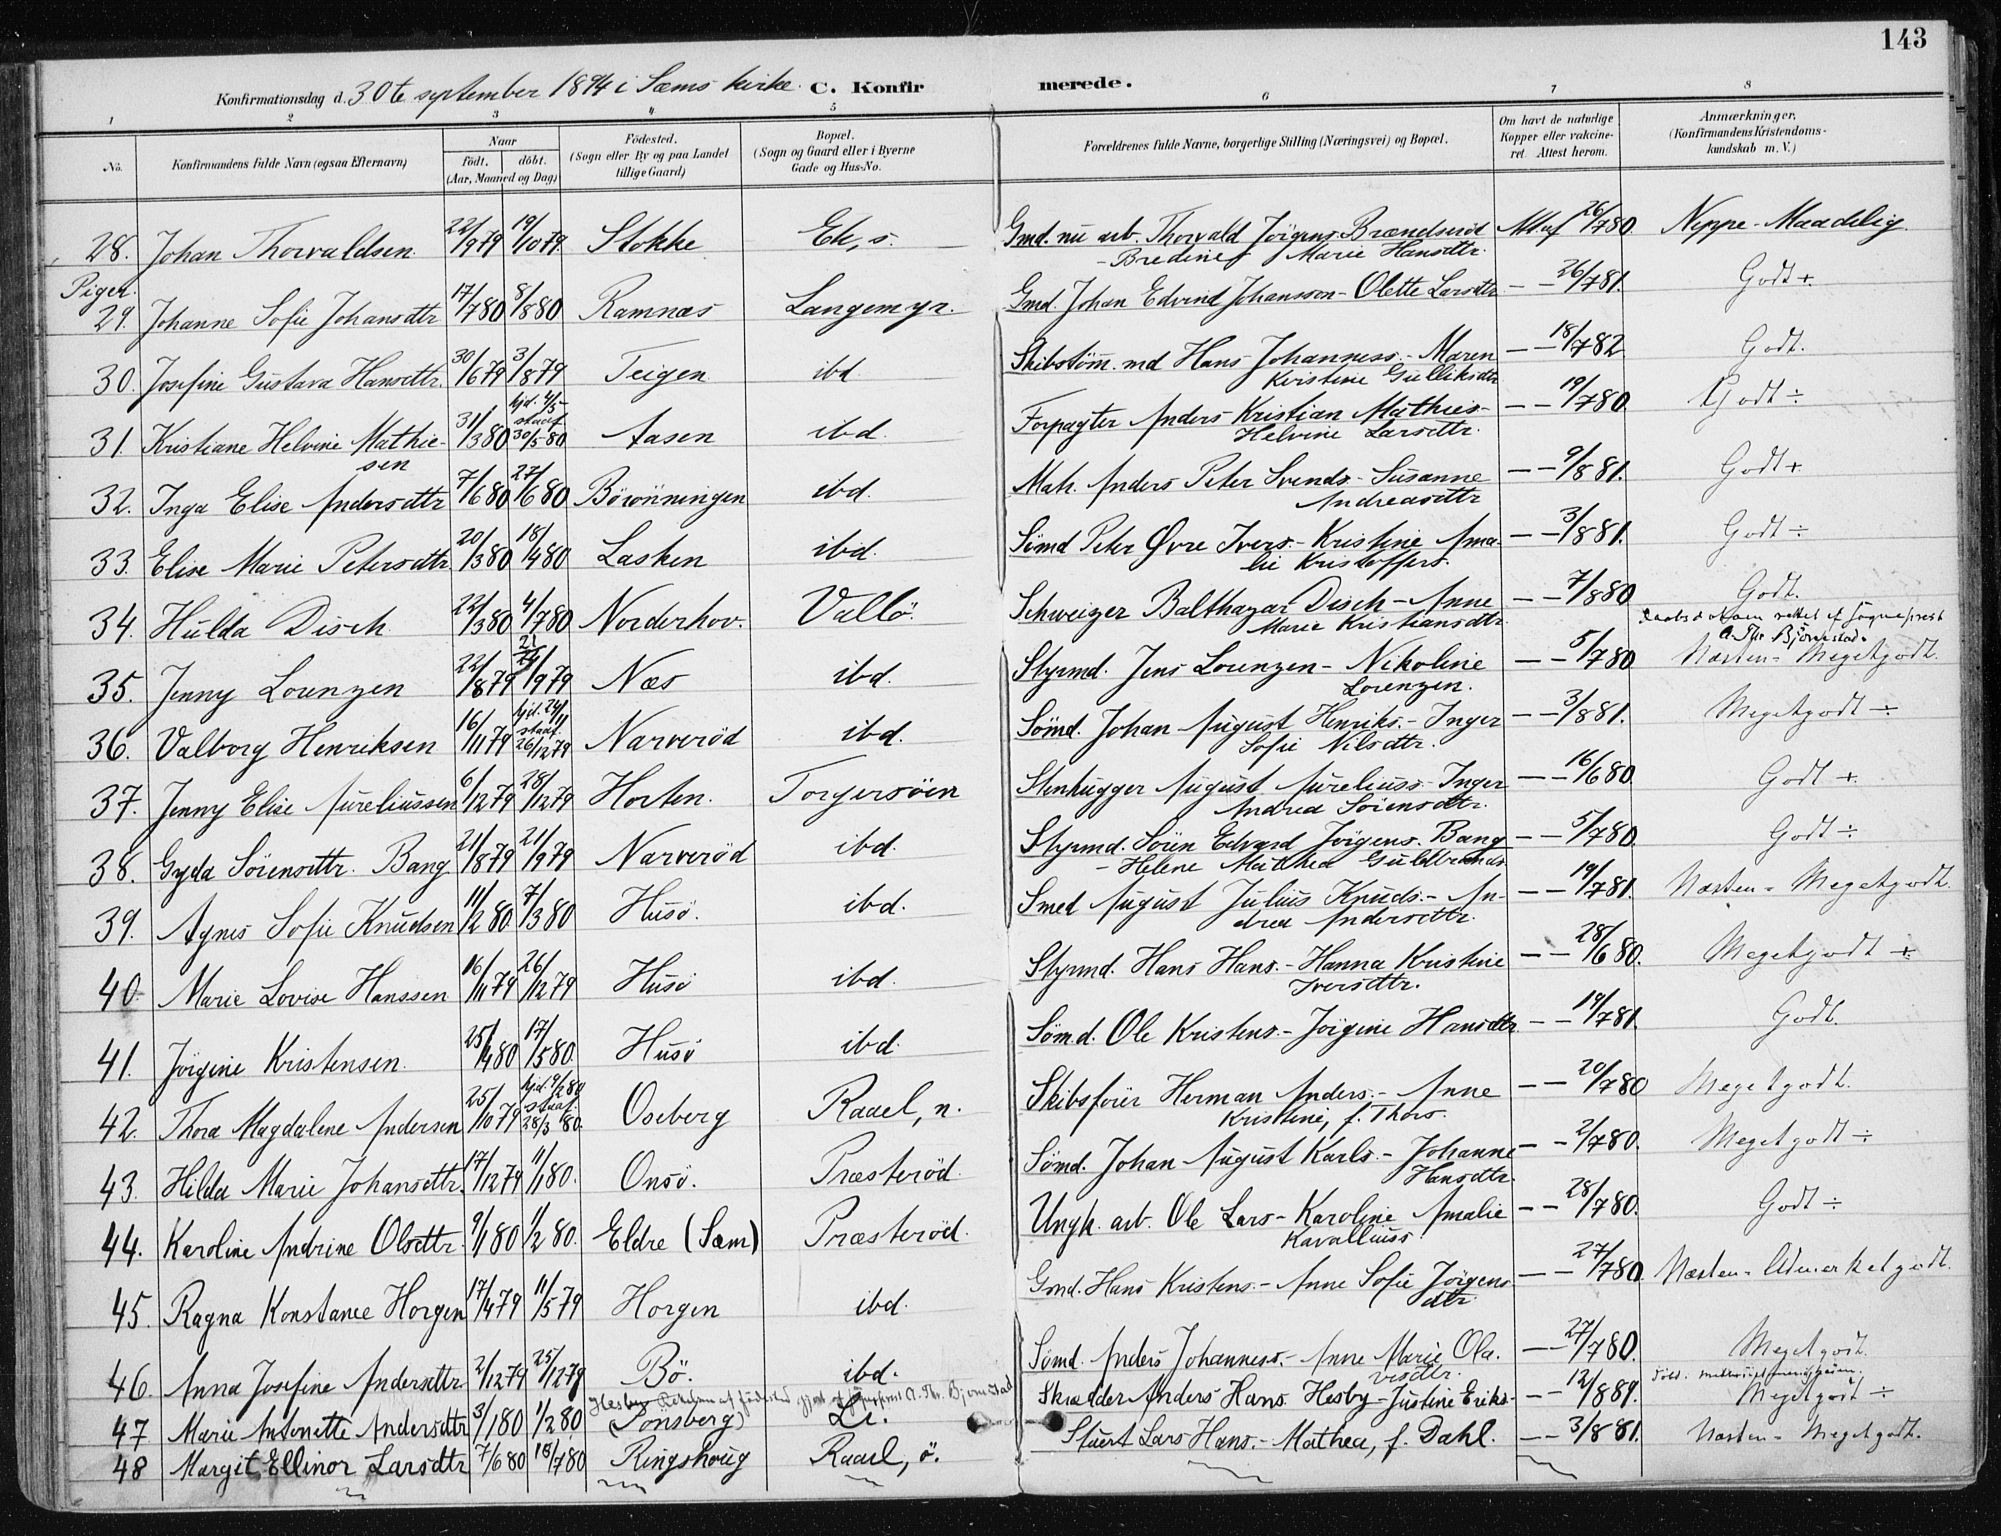 143
Konfirmationsdag d. 30te september 1894 i Sæms kirke. C. Konfirmerede.
1 2 3 4 5 6 7 8
No.
Konfirmandens fulde Navn (ogsaa Efternavn)
Naar
födt. döbt.
(Aar, Maaned og Dag)
Födested.
(Sogn eller By og paa Landet
tillige Gaard)
Bopæl.
(Sogn og Gaard eller i Byerne
Gade og Hus-No.
Forældrenes fulde Navne, borgerlige Stilling (Næringsvei) og Bopæl.
Om havt de naturlige
Kopper eller vakcine-
ret. Attest herom.
Anmærkninger.
(Konfirmandens Kristendoms-
kundskab m. V.)
28. Johan Thorvaldsen. 22/9 79 19/10 79 Stokke Ek, s. Gmd. nu arb. Thorvald Jörgens. Brændseröd - Bredine Marie Hansdtr. 26/7 80 Neppe-Maadelig
Piger.
29. Johanne Sofie Johansdtr 17/7 80 8/8 80 Ramnæs Langemyr. Gmd. Johan Edvind Johansson - Olette Larsdtr — — 26/7 81. Godt +
30. Josefine Gustava Hansdtr. 30/6 79 3/8 79 Teigen ibd Skibstöm. md Hans Johanness. - Maren Kristine Gulliksdtr — — 18/7 82 Godt.
31. Kristiane Helvine Mathiesen 31/3 80 hjd. 4/5 - stadf. 30/5 80 Aasen ibd. Forpagter Anders Kristian Mathies - Helvine Larsdtr. — — 19/7 80. Godt ÷
32. Inga Elise Andersdtr 7/6 80 27/6 80 Börönningen ibd. Mat. Anders Peter Svends - Susanne Andreasdtr — — 9/8 81. Godt +
33. Elise Marie Petersdtr. 20/3 80 18/4 80 Lasken ibid. Sömd Peter Øvre Ivers. - Kristine Amalie Kristoffers. — — 3/8 81. Godt ÷
34. Hulda Disch 22/3 80 4/7 80 Norderhov. Vallö. Schweizer Balthazar Disch - Anne Marie Kristiansdtr — — 7/8 80 Godt.
Daabsdatoen rettet af sogneprest
A. Thr. Bjönnstad.
35. Jenny Lorenzen 22/8 79 21/9 79 Næs ibd. Styrmd. Jens Lorenzen - Nikoline Lorenzen. — — 5/7 80 Næsten - Megetgodt.
36. Valborg Henriksen 16/11 79 hjd. 24/11 stadf. 26/12 79 Narveröd ibd. Sömd. Johan August Henriks. - Inger Sofie Nilsdtr. — — 3/8 81. Megetgodt ÷
37. Jenny Elise Aureliussen 6/12 79 28/12 79 Horten. Torgersöen Stenhugger August Aureliuss - Inger Andrea Sörensdtr. — — 16/6 80. Godt +
38. Gyda Sörensdtr. Bang 21/8 79 21/9 79 Narveröd ibd. Styrmd. Sören Edvard Jörgens. Bang - Helene Mathea Guldbrands — — 5/7 80. Godt ÷
39. Agnes Sofie Knudsen 11/2 80 7/3 80 Husö. ibd. Smed August Julius Knuds. - Andrea Andersdtr. — — 19/7 81. Næsten - Megetgodt.
40. Marie Lovise Hanssen 16/11 79 26/12 79 Husö ibd. Styrmd. Hans Hans. - Hanna Kristine Iversdtr. — — 28/6 80. Megetgodt +
41. Jörgine Kristensen. 25/4 80 17/5 80. Husö ibd. Sömd. Ole Kristens. - Jörgine Hansdtr — — 19/7 81. Godt.
42. Thora Magdalene Andersen 25/10 79 hjd. 9/2 80 stadf. 28/3 80. Oseberg Raael, n. Skibsförer Herman Anders. - Anne Kristine, f. Thors. — — 20/7 80 Megetgodt.
43. Hilda Marie Johansdtr. 17/12 79 11/1 80. Onsö. Præsteröd. Sömd. Johan August Karls. - Johanne Hansdtr. — — 2/7 80. Megetgodt ÷
44. Karoline Andrine Olsdtr. 9/1 80 1/2 80. Eldre (Sæm) Præsteröd. Ungk. arb. Ole Lars - Karoline Amalie Kavalliuss — — 28/7 80. Godt ÷
45. Ragna Konstance Horgen 17/4 79 11/5 79 Horgen ibd. Gmd. Hans Kristens. - Anne Sofie Jörgensdtr. — — 27/7 80. Næsten - Udmerketgodt.
46. Anna Josefine Andersdtr 2/12 79 25/12 79 Bö. ibd. Sömd. Anders Johanness. - Anne Marie Olavisdtr. — 27/7 80. Megetgodt.
47. Marie Antonette Andersdtr 3/1 80 1/2 80 Hesby (Tönsberg) Li. Skrædder Anders Hans. Hesby - Justine Eriks - — — 12/8 89. Megetgodt ÷
48 Margit Ellinor Larsdtr 7/6 80 18/7 80 Ringshoug Raael, ö. Stuert Lars Hans. - Mathea, f. Dahl. — — 3/8 81. Næsten - Megetgodt.